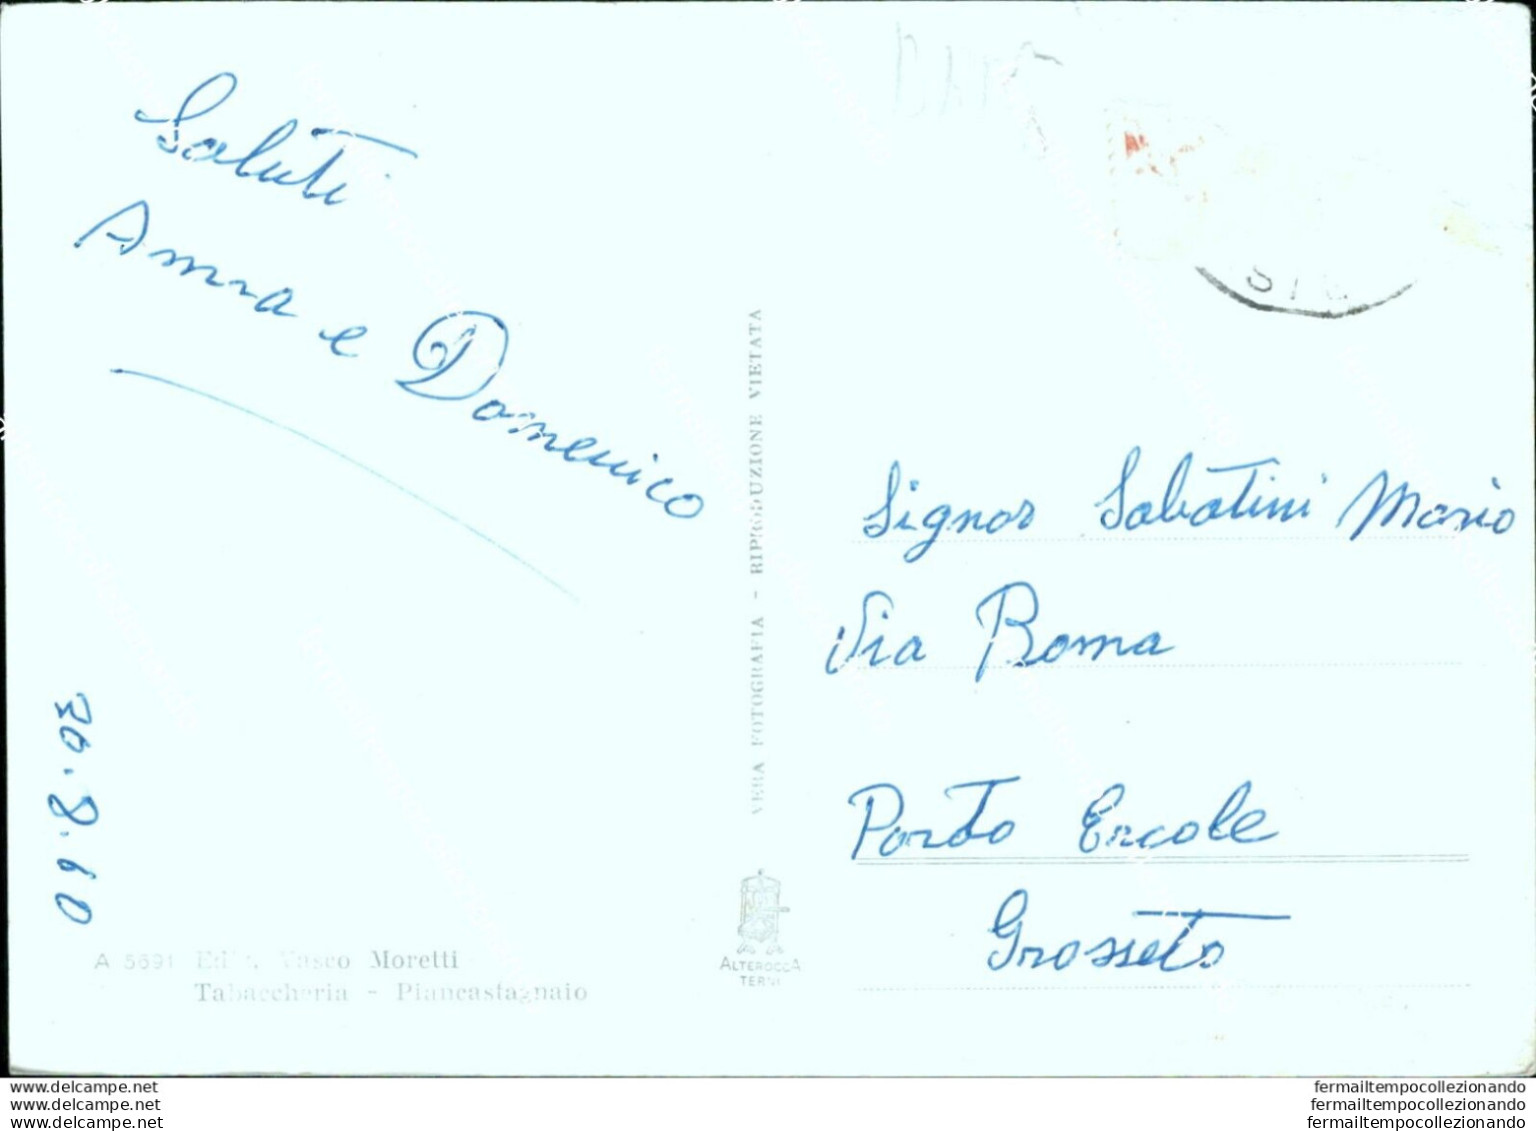 Saluti
Anna e Domenico
30.8.60
A 5691 Ediz. Vasco Moretti
Tabaccheria - Piancastagnaio
VERA FOTOGRAFIA - RIPRODUZIONE VIETATA
ALTEROCCA
TERNI
Signor Sabatini Mario
Via Roma
Porto Ercole
Grosseto
www.delcampe.net
www.delcampe.net
www.delcampe.net
fermailtempocollezionando
fermailtempocollezionando
fermailtempocollezionando